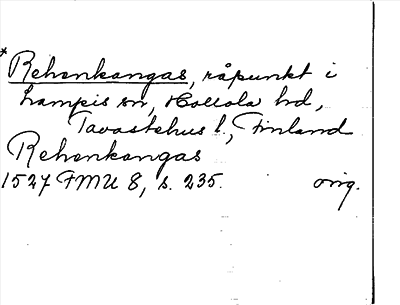 * Rehenkangas, råpunkt i
Lampis sn, Hollola hd,
Tavastehus l., Finland
Rehenkangas
1527 FMU 8, s. 235. orig.